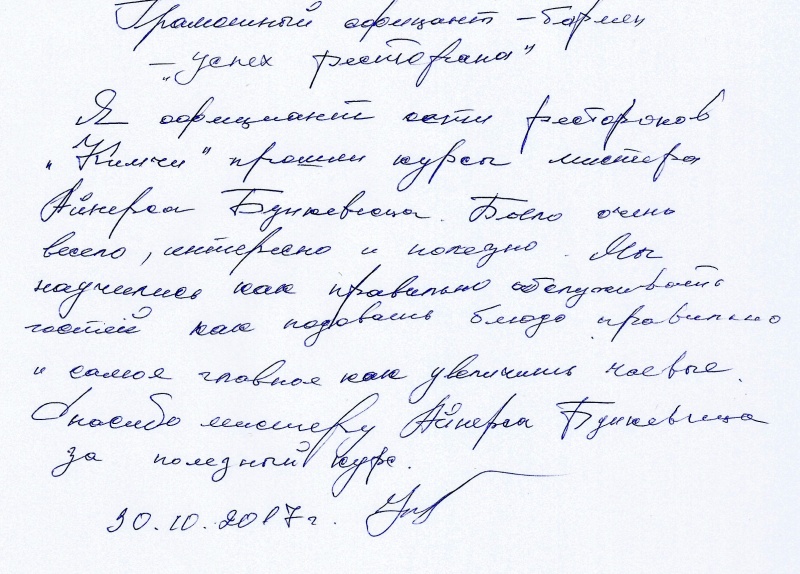 Грамотный официант - бармен
- "успех ресторана"
Я официант сети ресторонов
"Кимчи" прошли курсы мистера
Айнерса Бункевица. Было очень
весело, интересно и полезно. Мы
научились как правильно обслуживать
гостей как подовать блюдо правильно
и самое главное как увеличить чаевые.
Спасибо мистеру Айнерса Бункевица
за полезный курс.
30.10.2017г.